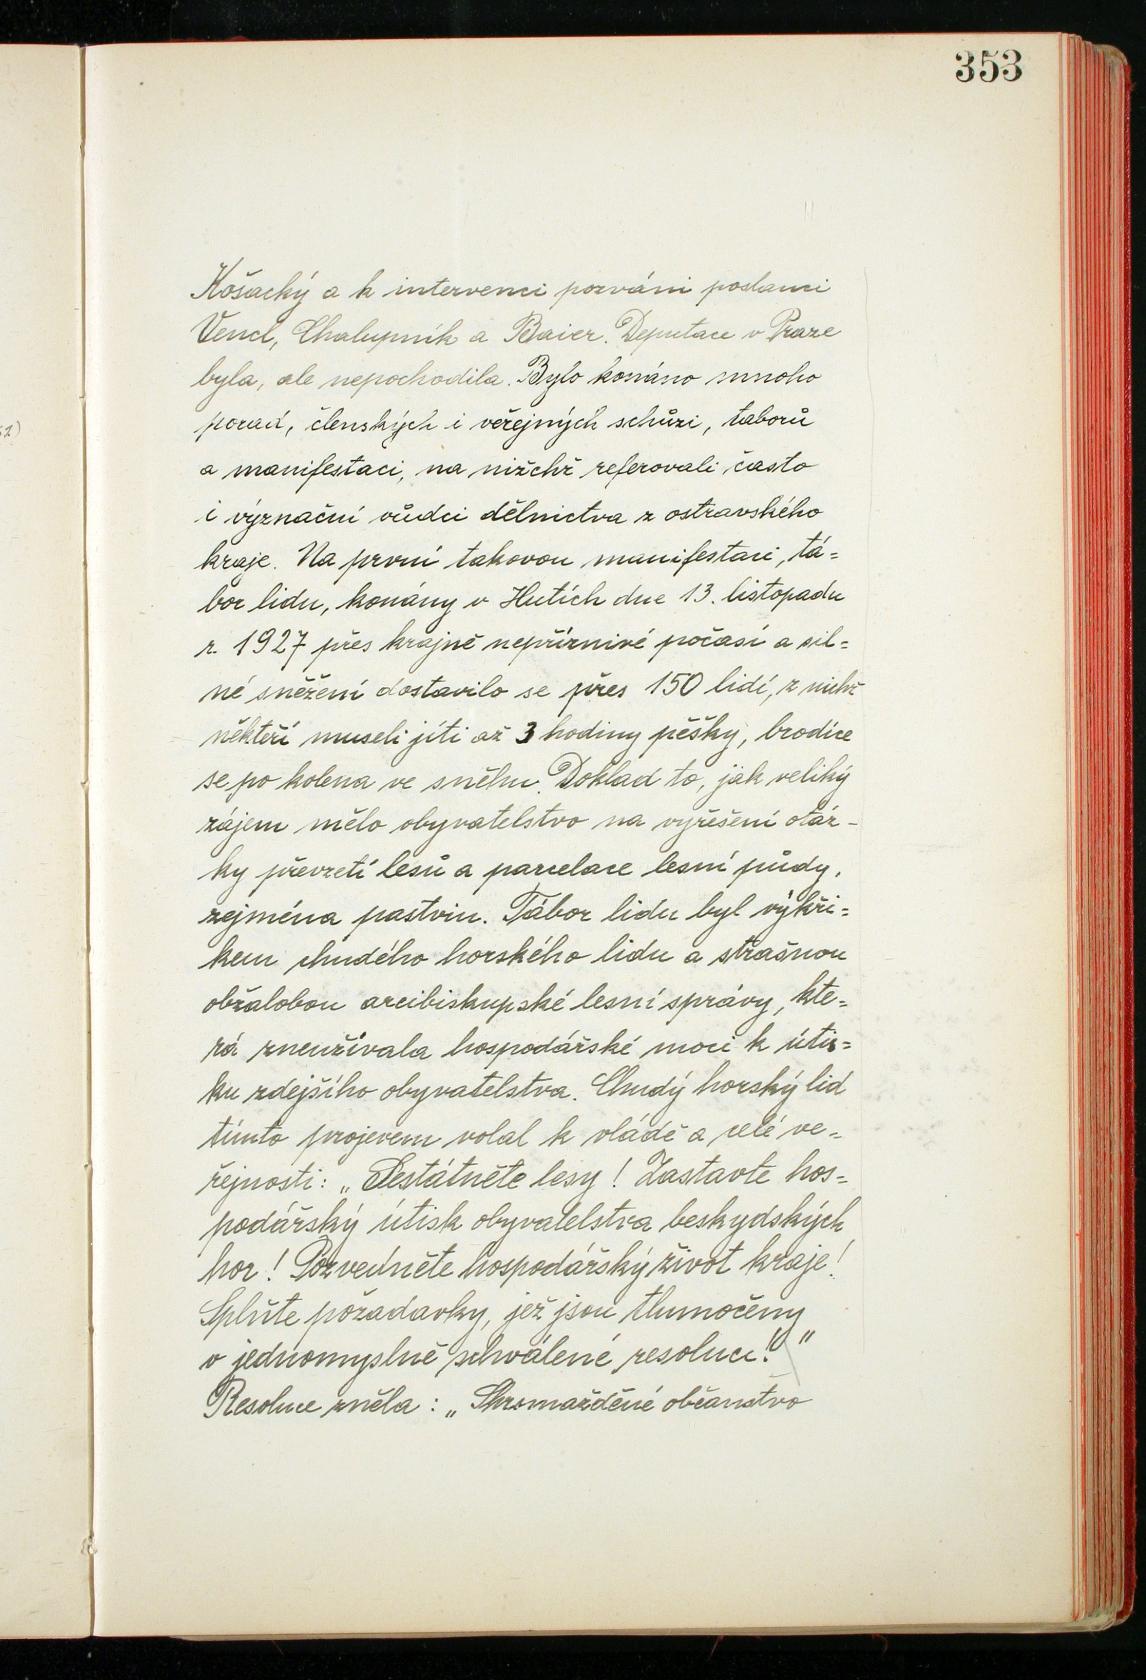 353
Košacký a k intervenci pozváni poslanci
Vencl, Chalupník a Baier. Deputace v Praze
byla, ale nepochodila. Bylo konáno mnoho
porad, členských i veřejných schůzi, taborů
a manifestaci, na nižchž referovali často
i význační vůdci dělnictva z ostravského
kraje. Na první takovou manifestaci, tá=
bor lidu, konány v Hutích dne 13. listopadu
r. 1927 přes krajně nepříznivé počasí a sil=
né sněžení dostavilo se přes 150 lidí, z nichž
někteří museli jíti až 3 hodiny pěšky, brodíce
se po kolena ve sněhu. Doklad to, jak veliký
zájem mělo obyvatelstvo na vyřešení otáz-
ky převzetí lesů a parcelace lesní půdy,
zejména pastvin. Tábor lidu byl výkři=
kem chudého horského lidu a strašnou
obžalobou arcibiskupské lesní správy, kte=
rá zneužívala hospodářské moci k útis=
ku zdejšího obyvatelstva. Chudý horský lid
tímto projevem volal k vládě a celé ve=
řejnosti: „Sestátněte lesy! Zastavte hos=
podářský útisk obyvatelstva beskydských
hor! Pozvedněte hospodářský život kraje!
Splňte požadavky, jež jsou tlumočeny
v jednomyslně schválené resoluci!"
Resoluce zněla: „Shromažděné občanstvo